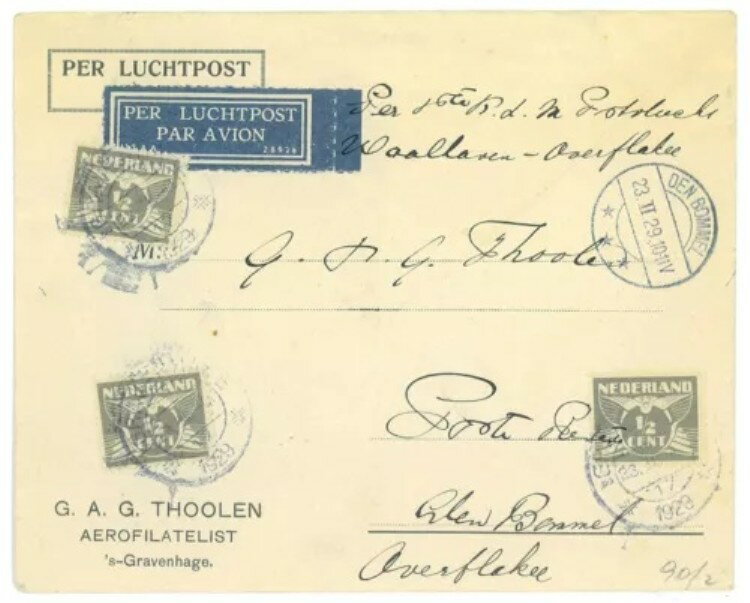 PER LUCHTPOST
PER LUCHTPOST
PAR AVION
Per K. L. M
Waalhaven - Overflakee
NEDERLAND
½
CENT
DEN BOMMEL
23.II.29.10-11V
G. A. G. Thoolen
NEDERLAND
½
CENT
1929
NEDERLAND
½
CENT
1929
Poste Restante
G. A. G. THOOLEN
AEROFILATELIST
's-Gravenhage.
Den Bommel
Overflakee
90/2